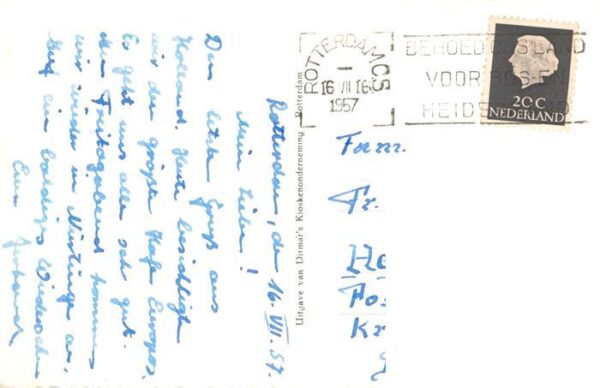 Rotterdam, den 16. VII. 57.
Mein Lieber!
Den letzten Gruß aus
Holland. Heute besichtigen
wir den größten Hafen Europas.
Es geht uns allen sehr gut.
Am Freitagabend kommen
wir wieder in Nürtingen an.
Auf ein baldiges Wiedersehen
Euer
Uitgave van Ditmar's Kioskenonderneming Rotterdam
ROTTERDAM CS
16 VII 16
1957
LAND
VOOR BOS-EN
20 C
NEDERLAND
Fam.
Fr.
He
Po
Kr